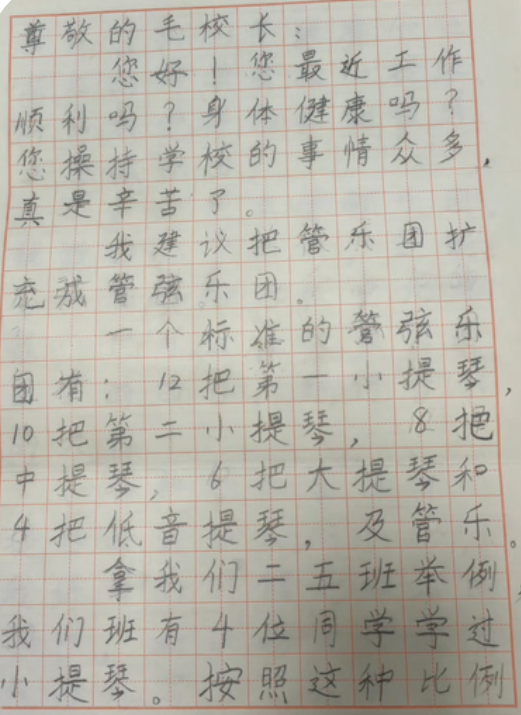 尊敬的毛校长:
您好!您最近工作
顺利吗?身体健康吗?
您操持学校的事情众多,
真是辛苦了。
我建议把管乐团扩
充成管弦乐团。
一个标准的管弦乐
团有:12把第一小提琴,
10把第二小提琴,8把
中提琴,6把大提琴和
4把低音提琴,及管乐。
拿我们二五班举例,
我们班有4位同学学过
小提琴。按照这种比例